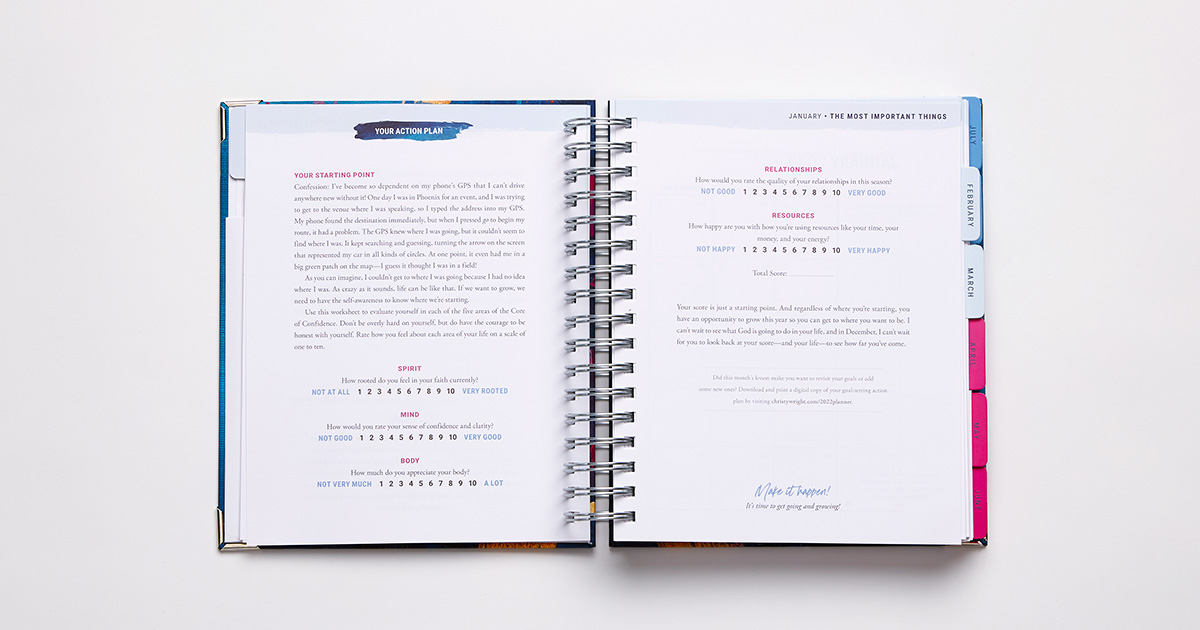 YOUR ACTION PLAN
YOUR STARTING POINT
Confession: I've become so dependent on my phone's GPS that I can't drive
anywhere new without it! One day I was in Phoenix for an event, and I was trying
to get to the venue where I was speaking, so I typed the address into my GPS.
My phone found the destination immediately, but when I pressed go to begin my
route, it had a problem. The GPS knew where I was going, but it couldn't seem to
find where I was. It kept searching and guessing, turning the arrow on the screen
that represented my car in all kinds of circles. At one point, it even had me in a
big green patch on the map—I guess it thought I was in a field!
As you can imagine, I couldn't get to where I was going because I had no idea
where I was. As crazy as it sounds, life can be like that. If we want to grow, we
need to have the self-awareness to know where we're starting.
Use this worksheet to evaluate yourself in each of the five areas of the Core
of Confidence. Don't be overly hard on yourself, but do have the courage to be
honest with yourself. Rate how you feel about each area of your life on a scale of
one to ten.
SPIRIT
How rooted do you feel in your faith currently?
NOT AT ALL 1 2 3 4 5 6 7 8 9 10 VERY ROOTED
MIND
How would you rate your sense of confidence and clarity?
NOT GOOD 1 2 3 4 5 6 7 8 9 10 VERY GOOD
BODY
How much do you appreciate your body?
NOT VERY MUCH 1 2 3 4 5 6 7 8 9 10 A LOT
JANUARY • THE MOST IMPORTANT THINGS
RELATIONSHIPS
How would you rate the quality of your relationships in this season?
NOT GOOD 1 2 3 4 5 6 7 8 9 10 VERY GOOD
RESOURCES
How happy are you with how you're using resources like your time, your
money, and your energy?
NOT HAPPY 1 2 3 4 5 6 7 8 9 10 VERY HAPPY
Total Score:
Your score is just a starting point. And regardless of where you're starting, you
have an opportunity to grow this year so you can get to where you want to be. I
can't wait to see what God is going to do in your life, and in December, I can't wait
for you to look back at your score—and your life—to see how far you've come.
Did this month's lesson make you want to revisit your goals or add
some new ones? Download and print a digital copy of your goal-setting action
plan by visiting christywright.com/2022planner.
Make it happen!
It's time to get going and growing!
JULY
FEBRUARY
MARCH
APRIL
MAY
JUNE